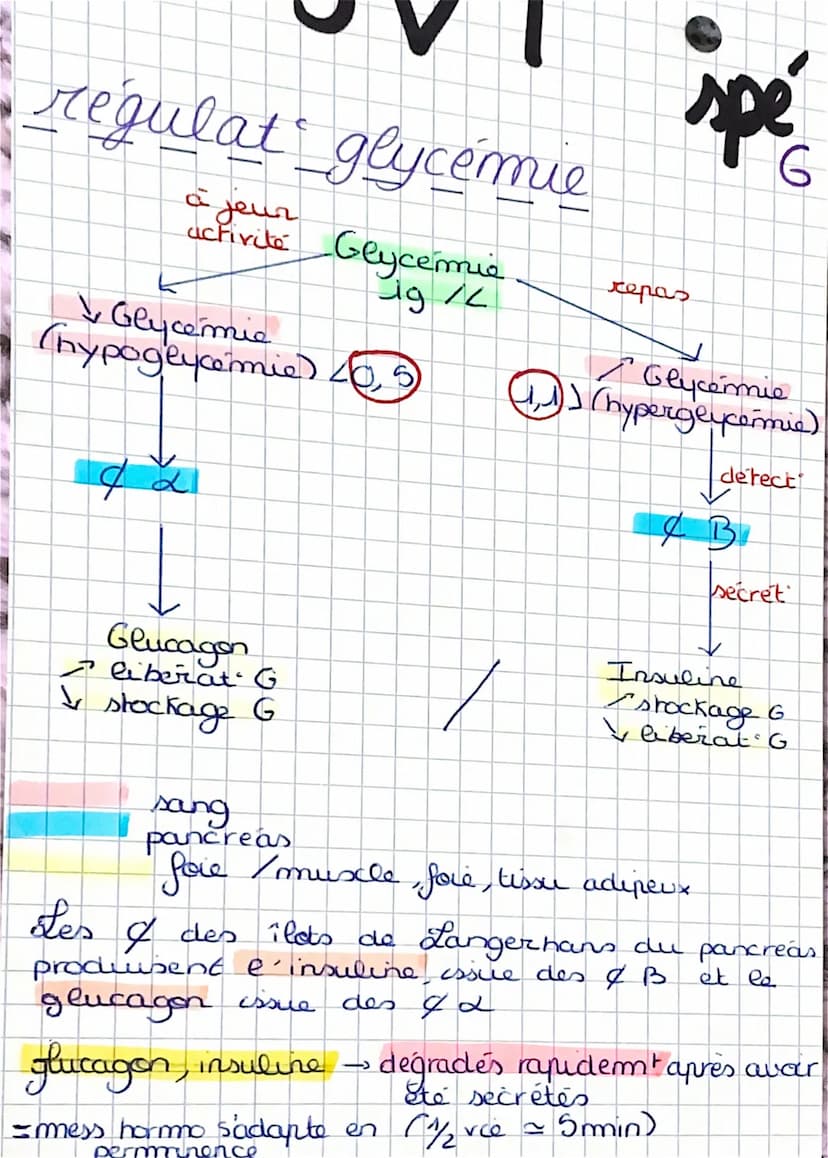 SVT
spé
G
régulat° glycémie
à jeun
activité
Glycémie
1g /L
repas
↘ Glycémie
(hypoglycémie) < 0,5
↗ Glycémie
1,1 > (hyperglycémie)
détect°
¢ α
¢ B
sécrét°
Glucagon
↗ libérat° G
↘ stockage G
/
Insuline
↗ stockage G
↘ libérat° G
sang
pancréas
foie / muscle, foie, tissu adipeux
Les ¢ des îlots de Langerhans du pancréas
produisent l'insuline, issue des ¢ B et le
glucagon issue des ¢ α
glucagon, insuline → dégradés rapidemt après avoir
été sécrétés
= mess hormo s'adapte en (1/2 vie ≃ 5min)
permanence